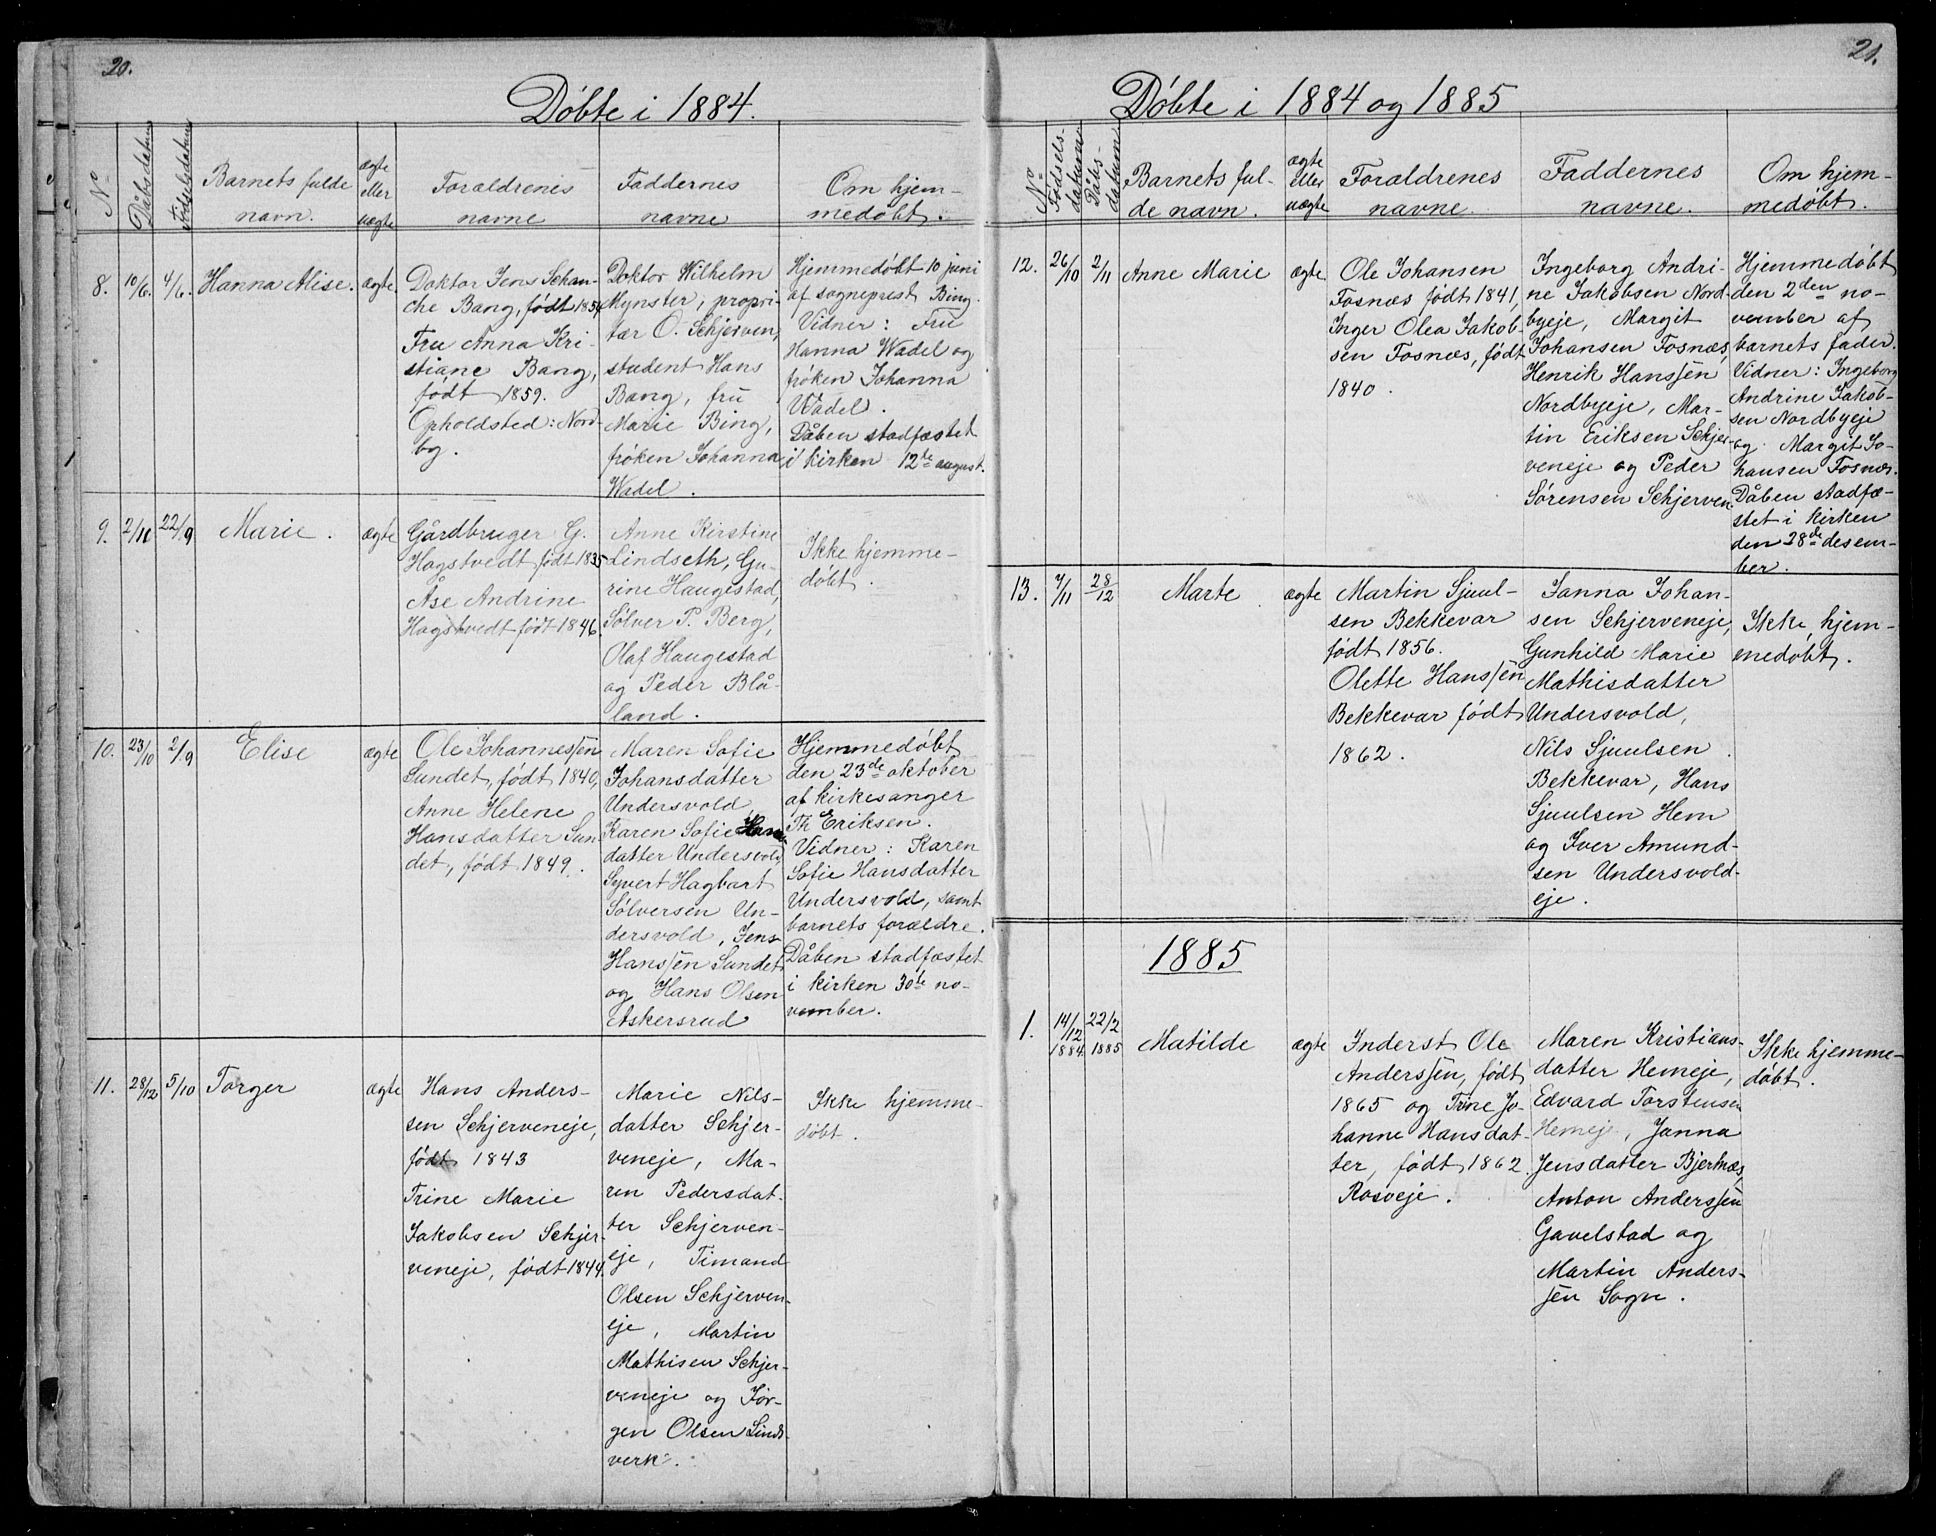 20.
Døbte i 1884.
No
Dåbsdatum
Fødselsdatum
Barnets fulde
navn.
ægte
eller
uægte
Forældrenes
navne
Faddernes
navne
Om hjem-
medøbt.
8.
10/6.
4/6.
Hanna Alise.
ægte
Doktor Jens Schan-
che Bang, født 1854
Fru Anna Kri-
stiane Bang,
født 1859.
Opholdsted: Nord-
by.
Doktor Wilhelm
Mynster, propri-
tær O. Schjerven,
student Hans
Bang, fru
Marie Bing,
frøken Johanna
Wadel.
Hjemmedøbt 10 juni
af sogneprest Bing.
Vidner: Fru
Hanna Wadel og
frøken Johanna
Wadel.
Dåben stadfæstet
i kirken 12te august.
9.
2/11
22/9
Marie.
ægte
Gårdbruger G.
Hagstvedt født 1835
Åse Andrine
Hagstvedt født 1846.
Anne Kirstine
Lindseth, Gu-
rine Haugestad,
Sølver P. Berg,
Olaf Haugestad
og Peder Blå-
land.
Ikke hjemme-
døbt.
10.
23/10
2/9
Elise
ægte
Ole Johannessen
Sundet, født 1840,
Anne Helene
Hansdatter Sun-
det, født 1849.
Maren Sofie
Johansdatter
Undersvold,
Karen Sofie Hans
datter Undersvold,
Syvert Hagbart
Sølversen Un-
dersvold, Jens
Hanssen Sundet
og Hans Olsen
Askersrud
Hjemmedøbt
den 23de oktober
af kirkesanger
Th Eriksen.
Vidner: Karen
Sofie Hansdatter
Undersvold, samt
barnets forældre.
Dåben stadfæstet
i kirken 30te no-
vember.
11.
28/12
5/10
Torger
ægte
Hans Anders-
sen Schjerveneje,
født 1843
Trine Marie
Jakobsen Schjer-
veneje, født 1844.
Marie Nils-
datter Schjer-
veneje, Ma-
ren Pedersdat-
ter Schjerven-
eje, Timand
Olsen Schjerven-
eje, Martin
Mathisen Schjer-
veneje og Jør-
gen Olsen Linds-
verk.
Ikke hjemme-
døbt.
21.
Døbte i 1884 og 1885
No
Fødsels-
datum
Dåbs-
datum
Barnets ful-
de navn.
ægte
eller
uægte
Forældrenes
navne.
Faddernes
navne.
Om hjem-
medøbt.
12.
26/10
2/11
Anne Marie
ægte
Ole Johansen
Fosnæs født 1841,
Inger Olea Jakob-
sen Fosnæs, født
1840.
Ingeborg Andri-
ne Jakobsen Nord
byeje, Margit
Johansen Fosnæs,
Henrik Hanssen
Nordbyeje, Mar-
tin Eriksen Schjer-
veneje og Peder
Sørensen Schjerven
Hjemmedøbt
den 2den no-
vember af
barnets fader.
Vidner: Ingeborg
Andrine Jakob-
sen Nordbyeje
og Margit Jo-
hansen Fosnæs.
Dåben stadfæ-
stet i kirken
den 28de desem-
ber.
13.
7/11
28/12
Marte
ægte
Martin Sjuul-
sen Bekkevar
født 1856.
Olette Hanssen
Bekkevar født
1862.
Janna Johan-
sen Schjerveneje,
Gunhild Marie
Mathisdatter
Undersvold,
Nils Sjuulsen
Bekkevar, Hans
Sjuulsen Hem
og Iver Amund-
sen Undersvold-
eje.
Ikke hjem-
medøbt.
1885
1.
14/12
1884
22/2
1885
Matilde
ægte
Inderst Ole
Anderssen, født
1865 og Trine Jo-
hanne Hansdat-
ter, født 1862.
Rosveje.
Maren Kristians-
datter Hemeje,
Edvard Torstensen
Hemej, Janna
Jensdatter Bjertnæs,
Anton Anderssen
Gavelstad og
Martin Anders-
sen Sogn.
Ikke hjemme-
døbt.